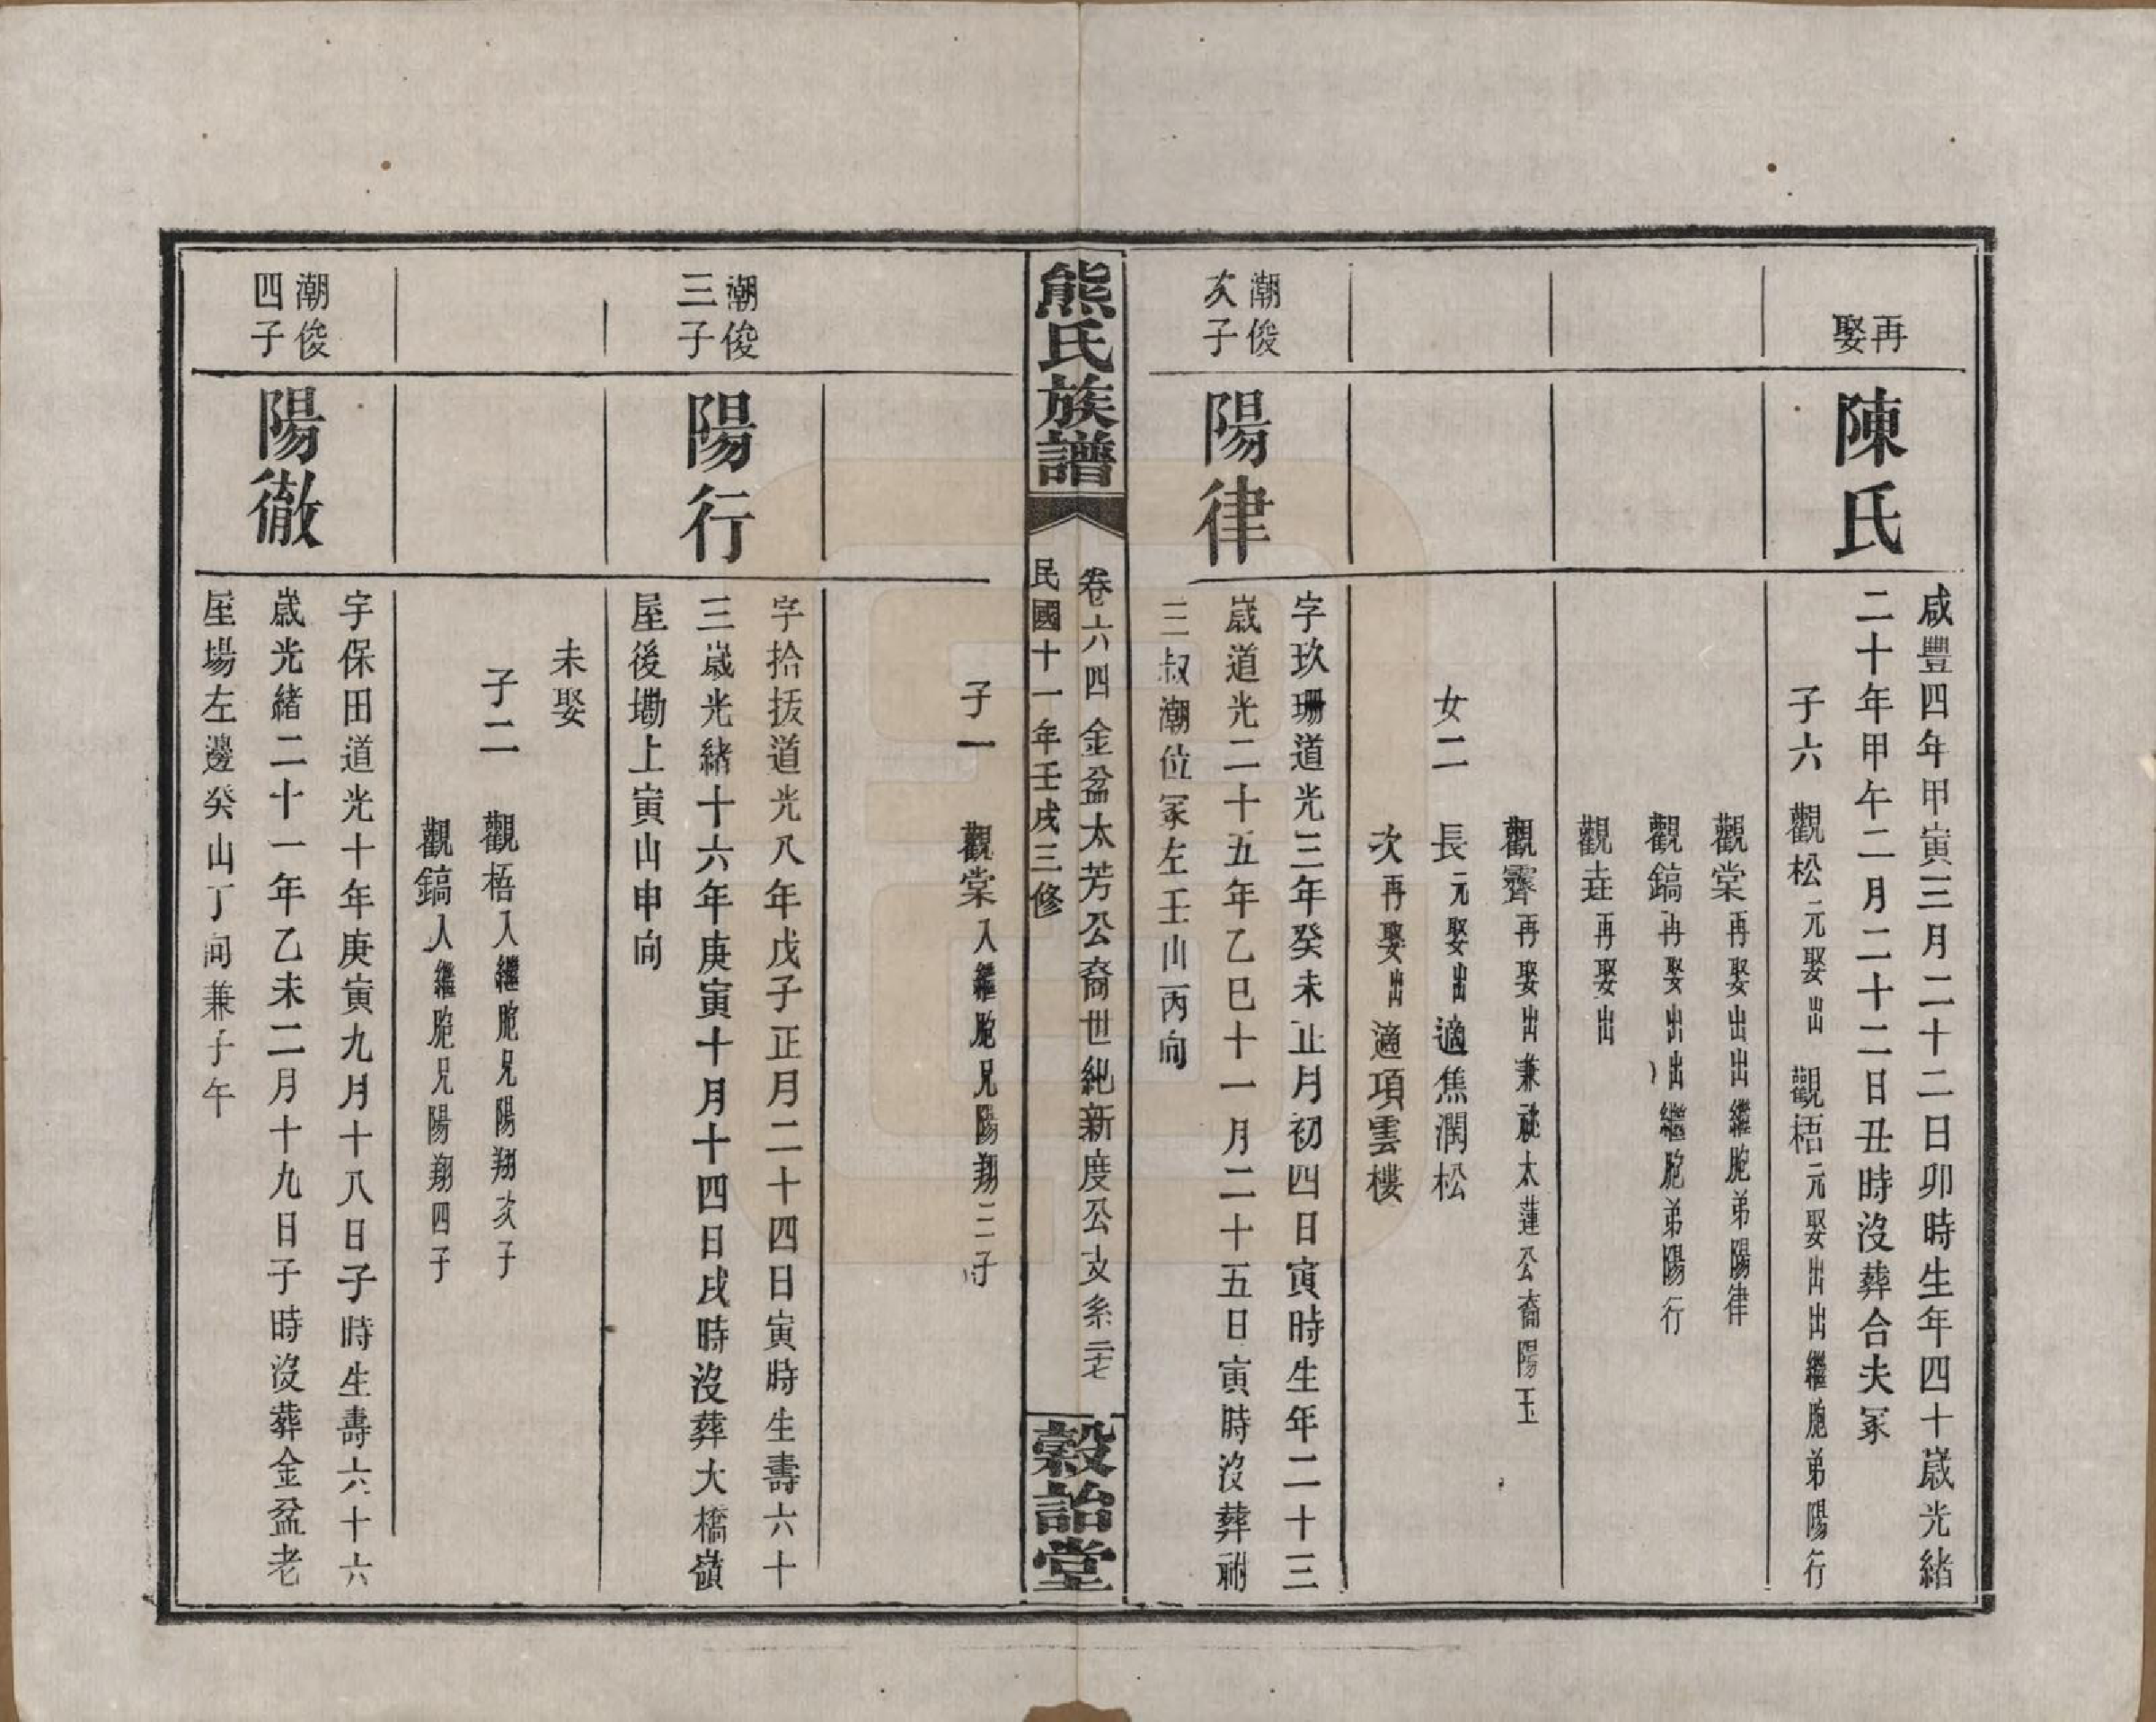 再娶
陳氏
咸豐四年甲寅三月二十二日卯時生年四十歲光緒
二十年甲午二月二十二日丑時沒葬合夫冢
子六 觀松元娶出 觀梧元娶出出繼胞弟陽行
觀棠再娶出出繼胞弟陽律
觀鎬再娶出出繼胞弟陽行
觀垚再娶出
觀霽再娶出兼祧太蓮公裔陽玉
女二 長元娶出適焦潤松
次再娶出適項雲樓
潮俊次子
陽律
字玖珊道光三年癸未正月初四日寅時生年二十三
歲道光二十五年乙巳十一月二十五日寅時沒葬祔
三叔潮位冢左壬山丙向
熊氏族譜
卷六四 金盆太芳公裔世紀新度公支系 二十七
民國十一年壬戌三修
穀詒堂
子一 觀棠入繼胞兄陽翔三子
潮俊三子
陽行
字拾拔道光八年戊子正月二十四日寅時生壽六十
三歲光緒十六年庚寅十月十四日戌時沒葬大橋嶺
屋後墈上寅山申向
未娶
子二 觀梧入繼胞兄陽翔次子
觀鎬入繼胞兄陽翔四子
潮俊四子
陽徹
字保田道光十年庚寅九月十八日子時生壽六十六
歲光緒二十一年乙未二月十九日子時沒葬金盆老
屋場左邊癸山丁向兼子午